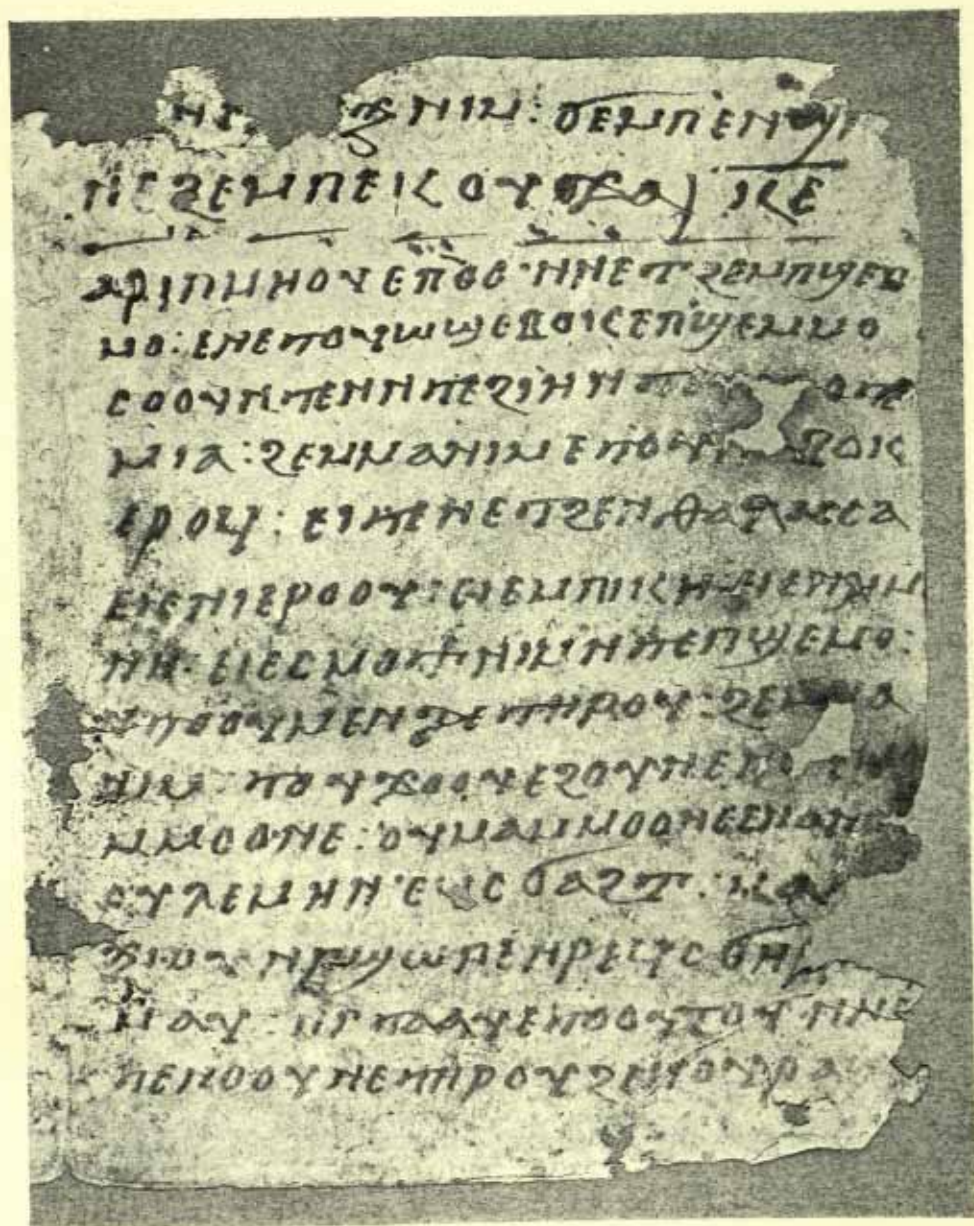 ⲛⲓⲙ : ϭⲉⲙⲡⲉⲛϣⲓ
ⲛⲉϩⲉⲙⲡⲉⲕⲟⲩϫⲁⲓ ⲕⲉ
ⲁⲣⲓⲡⲙⲏⲟⲩⲉⲡϭⲥ ⲛⲛⲉⲧϩⲉⲙⲡϣⲉⲙ
ⲙⲟ : ⲉⲛⲉⲧⲟⲩⲱϣⲉⲃⲟⲕⲉⲡϣⲉⲙⲙⲟ
ⲥⲟⲟⲩⲛⲧⲉⲛⲛⲧⲉϩⲓⲏ
ⲙⲓⲁ : ϩⲉⲙⲙⲁⲛⲓⲙⲉⲧⲟⲩ ⲃⲟⲕ
ⲉⲣⲟϥ : ⲉⲓⲧⲉⲛⲉⲧϩⲉⲛⲑⲁⲗⲁⲥⲥⲁ
ⲉⲓⲉⲛⲓⲉⲣⲟⲟⲩ : ⲉⲓⲉⲙⲡⲓⲕⲏ ⲉⲓⲉⲡⲗⲓⲙ
ⲛⲏ· ⲉⲓⲉⲥⲙⲟⲧⲛⲓⲙⲛⲧⲉⲡϣⲉⲙⲟ :
ⲙⲉⲛϫⲉⲧⲏⲣⲟⲩ : ϩⲉⲛⲙⲁ
ⲛⲓⲙ : ⲧⲟⲩϫⲟⲟⲩⲉϩⲟⲩⲛⲉ
ⲙⲙⲟⲟⲛⲉ : ⲟⲩⲙⲁⲙⲙⲟⲟⲛⲉⲉⲛⲁⲛ
ⲟⲩⲗⲉⲙⲏⲛ·ⲉϥⲥϭⲁϩⲧ : ⲙⲁ
ϫⲓⲟⲩⲛⲣϣⲱⲡⲉⲛⲣⲉϥⲥϭⲏⲣ
ⲙⲁⲩ : ⲛⲅⲧⲁⲁⲩⲉⲧⲟⲟⲩⲧⲟⲩⲛⲛⲉ
ⲧⲉⲛⲟⲟⲩⲛⲉⲧⲏⲣⲟⲩϩⲉⲛⲟⲩⲣⲁ